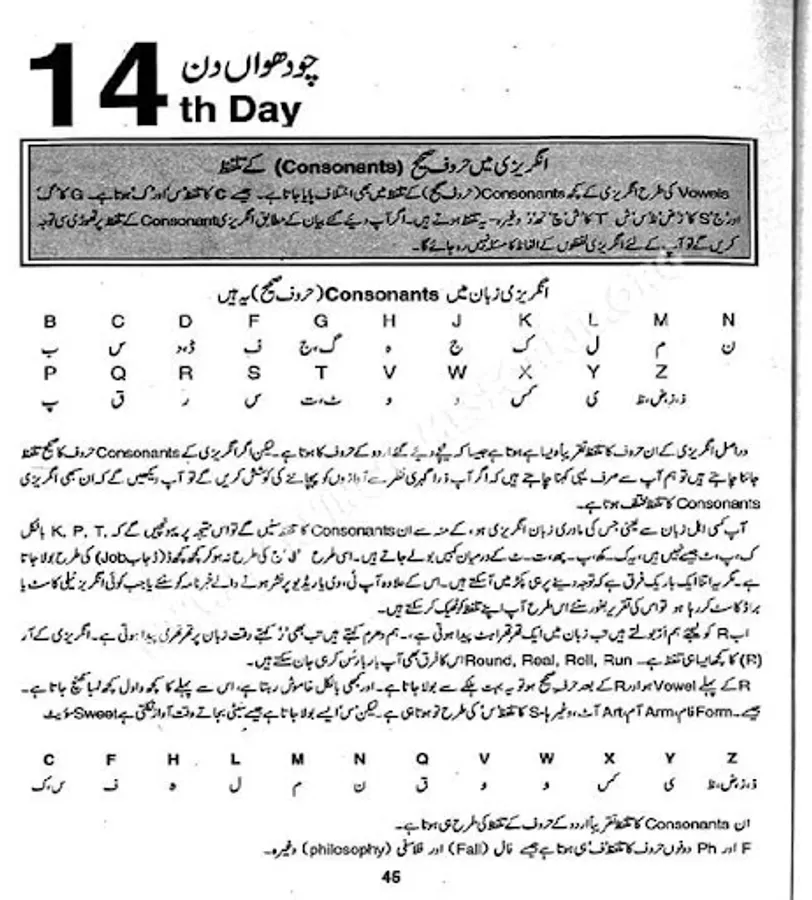 14 چودھواں دن
th Day
انگریزی میں حروف صحیح (Consonants) کے تلفظ
Vowels کی طرح انگریزی کے کچھ Consonants (حروف صحیح) کے تلفظ میں بھی اختلاف پایا جاتا ہے۔ جیسے C کا تلفظ 'س' اور 'ک' ہوتا ہے۔ G کا 'گ'
اور 'ج' S کا وغیرہ۔ یہ تلفظ ہوتے ہیں۔ اگر آپ دیئے گئے بیان کے مطابق انگریزی Consonant کے تلفظ پر تھوڑی سی توجہ
کریں گے تو آپ کے لئے انگریزی لفظوں کے الفاظ کا مسئلہ نہیں رہ جائے گا۔
انگریزی زبان میں Consonants (حروف صحیح) یہ ہیں
B C D F G H J K L M N
ب س ڈ،د ف گ،ج ہ ج ک ل م ن
P Q R S T V W X Y Z
پ ق ر س ٹ،ت و و کس ی ذ،ز،ض،ظ
دراصل انگریزی کے ان حروف کا تلفظ تقریباً ویسا ہے ہوتا ہے جیسا کہ نیچے دیئے گئے اردو کے حروف کا ہوتا ہے۔ لیکن اگر انگریزی کے Consonants حروف کا صحیح تلفظ
جاننا چاہتے ہیں تو ہم آپ سے صرف یہی کہنا چاہتے ہیں کہ اگر آپ ذرا گہری نظر سے آوازوں کو پہچاننے کی کوشش کریں گے تو آپ دیکھیں گے کہ ان بھی انگریزی
Consonants کا تلفظ مختلف ہوتا ہے۔
آپ کسی اہل زبان سے یعنی جس کی مادری زبان انگریزی ہو، کے منہ سے ان Consonants کا تلفظ سنیں گے تو اس نتیجہ پر پہونچیں گے کہ K, P, T, بالکل
ک، پ، ٹ جیسے نہیں ہیں، یہ ک۔کھ، پ۔پھ، ت۔ٹ کے درمیان کہیں بولے جاتے ہیں۔ اسی طرح 'J' ج کی طرح نہ ہو کر کچھ کچھ (Job) کی طرح بولا جاتا
ہے۔ مگر یہ اتنا ایک باریک فرق ہے کہ توجہ دینے پر ہی پکڑ میں آسکتے ہیں۔ اس کے علاوہ آپ ٹی، وی یا ریڈیو پر نشر ہونے والے خبرنامہ کو سنئے یا جب کوئی انگریز ٹیلی کاسٹ یا
براڈ کاسٹ کر رہا ہو تو اس کی تقریر بغور سنئے اس طرح آپ اپنے تلفظ کو ٹھیک کر سکتے ہیں۔
اب R کو لیجئے ہم 'ر' بولتے ہیں تب زبان میں ایک تھرتھراہٹ پیدا ہوتی ہے، ہم دھرم کہتے ہیں تب بھی 'ر' کہتے وقت زبان پر تھرتھری پیدا ہوتی ہے۔ انگریزی کے آر
(R) کا کچھ ایسا ہی تلفظ ہے۔ Round, Real, Roll, Run اس کا فرق بھی آپ بار بار سن کر ہی جان سکتے ہیں۔
R کے پہلے Vowel ہو اور R کے بعد حرف صحیح ہو تو یہ بہت ہلکے سے بولا جاتا ہے۔ اور کبھی بالکل خاموش رہتا ہے، اس سے پہلے کا کچھ واول کچھ لمبا کھینچ جاتا ہے۔
جیسے۔ Form فام، Arm آم، Art آٹ، وغیرہ S کا تلفظ 'س' کی طرح تو ہوتا ہی ہے۔ لیکن 'س' ایسے بولا جاتا ہے جیسے سیٹی بجاتے وقت آواز نکلتی ہے Sweet سوئیٹ
C F H L M N Q V W X Y Z
س،ک ف ہ ل م ن ق و و کس ی ذ،ز،ض،ظ
ان Consonants کا تلفظ تقریباً اردو کے حروف کے تلفظ کی طرح ہی ہوتا ہے۔
F اور Ph دونوں حروف کا تلفظ 'ف' ہی ہوتا ہے جیسے فال (Fall) اور فلاسفی (philosophy) وغیرہ۔
46